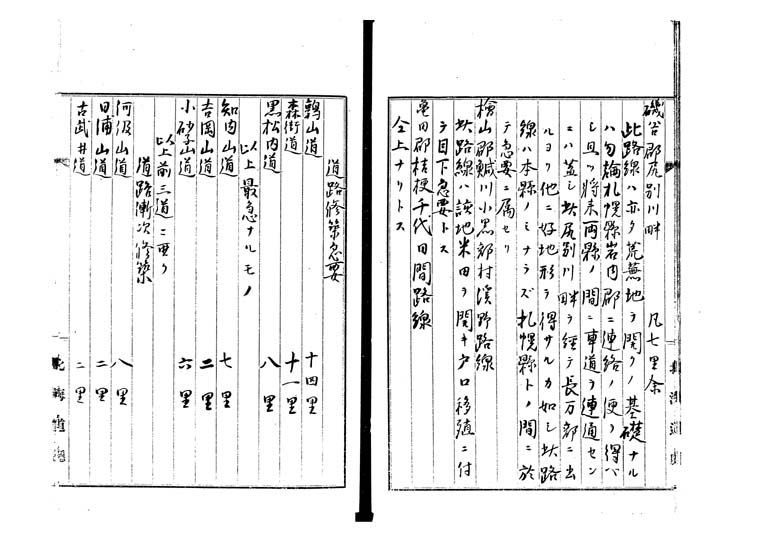 磯谷郡尻別川畔　凡七里余
此路線ハ亦タ荒蕪地ヲ開クノ基礎ナル
ハ勿論札幌縣岩内郡ニ連絡ノ便ヲ得ヘ
シ且ツ将来両縣ノ間ニ車道ヲ連通セン
ニハ蓋シ此尻別川畔ヲ経テ長万部ニ出
ルヨリ他ニ好地形ヲ得サルカ如シ此路
線ハ本縣ノミナラズ札幌縣トノ間ニ於
テ急要ニ属セリ
檜山郡鰔川小黒部村渓野路線
此路線ハ該地米田ヲ開キ戸口移殖ニ付
テ目下急要トス
亀田郡桔梗千代田間路線
仝上ナリトス
道路修築急要
鶉山道　十四里
森街道　十一里
黒松内道　八里
以上最急ナルモノ
知内山道　七里
吉岡山道　二里
小砂子山道　六里
以上前三道ニ亜ク
道路漸次修築
河汲山道　八里
日浦山道　二里
古武井道　二里